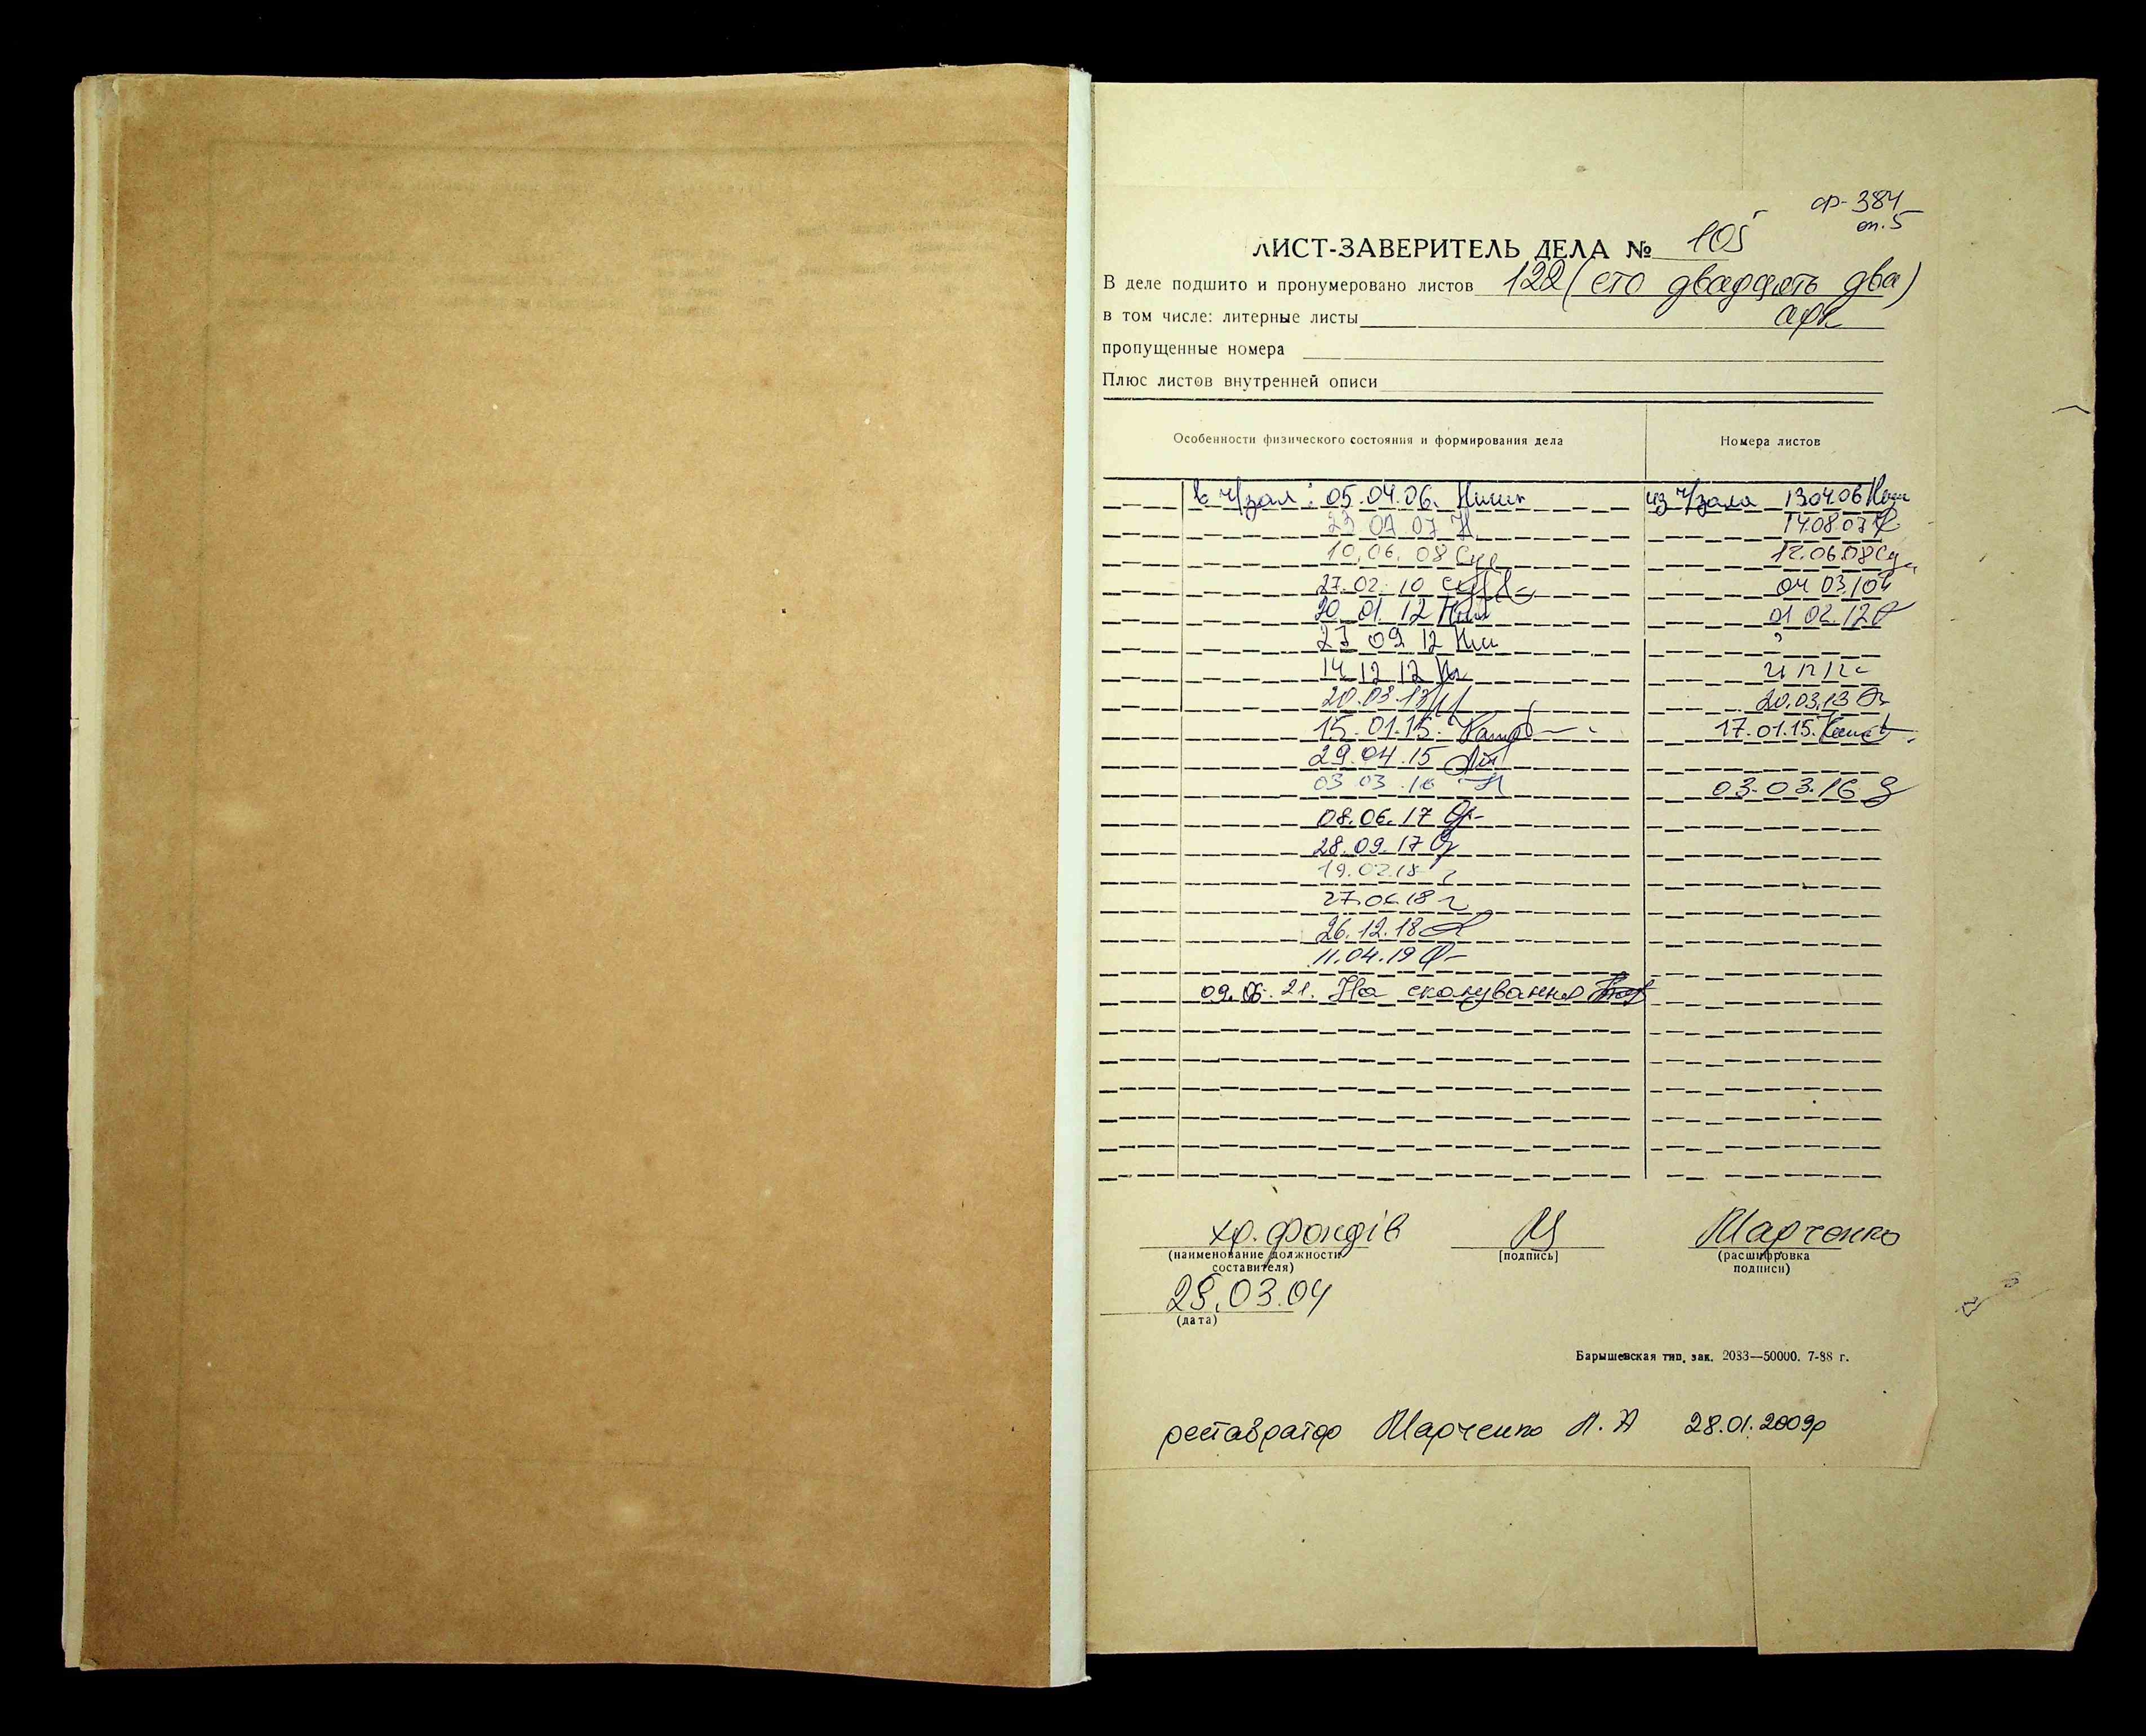 ф-384
оп. 5
ЛИСТ-ЗАВЕРИТЕЛЬ ДЕЛА № 105
В деле подшито и пронумеровано листов 122 (сто двадцять два)
в том числе: литерные листы арк
пропущенные номера
Плюс листов внутренней описи
Особенности физического состояния и формирования дела Номера листов
в ч/зал: 05.04.06. из ч/зала 13.04.06
23 07 07 14.08.07
10.06.08 12.06.08
27.02.10 04 03 10
30 01 12 01 02.12
23 09 12
14 12 12
20.03.13 20.03.13
15.01.15. 17.01.15.
29.04.15
03 03.16 03.03.16
08.06.17
28.09.17
19.02.18
27.06.18
26.12.18
11.04.19
09.06.21. На сканування
хр. фондів Марченко
(наименование должности (подпись) (расшифровка
составителя) подписи)
29.03.04
(дата)
Барышевская тип. зак. 2083—50000. 7-88 г.
реставратор Марченко Л. А 28.01.2009р